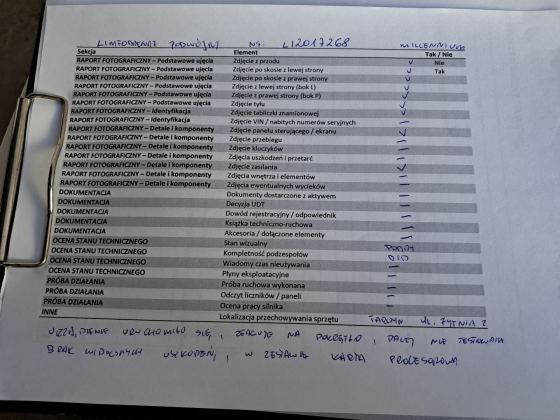 LIMFODRENAŻ PODWÓJNY NS: LI2017268 MILLENNIUM
Sekcja Element Tak / Nie
RAPORT FOTOGRAFICZNY – Podstawowe ujęcia Zdjęcie z przodu ✓ Nie
RAPORT FOTOGRAFICZNY – Podstawowe ujęcia Zdjęcie po skosie z lewej strony ✓ Tak
RAPORT FOTOGRAFICZNY – Podstawowe ujęcia Zdjęcie po skosie z prawej strony ✓
RAPORT FOTOGRAFICZNY – Podstawowe ujęcia Zdjęcie z lewej strony (bok L) ✓
RAPORT FOTOGRAFICZNY – Podstawowe ujęcia Zdjęcie z prawej strony (bok P) ✓
RAPORT FOTOGRAFICZNY – Podstawowe ujęcia Zdjęcie tyłu ✓
RAPORT FOTOGRAFICZNY – Identyfikacja Zdjęcie tabliczki znamionowej ✓
RAPORT FOTOGRAFICZNY – Identyfikacja Zdjęcie VIN / nabitych numerów seryjnych –
RAPORT FOTOGRAFICZNY – Detale i komponenty Zdjęcie panelu sterującego / ekranu ✓
RAPORT FOTOGRAFICZNY – Detale i komponenty Zdjęcie przebiegu –
RAPORT FOTOGRAFICZNY – Detale i komponenty Zdjęcie kluczyków –
RAPORT FOTOGRAFICZNY – Detale i komponenty Zdjęcia uszkodzeń i przetarć –
RAPORT FOTOGRAFICZNY – Detale i komponenty Zdjęcie zasilania ✓
RAPORT FOTOGRAFICZNY – Detale i komponenty Zdjęcia wnętrza i elementów –
RAPORT FOTOGRAFICZNY – Detale i komponenty Zdjęcia ewentualnych wycieków –
DOKUMENTACJA Dokumenty dostarczone z aktywem –
DOKUMENTACJA Decyzja UDT –
DOKUMENTACJA Dowód rejestracyjny / odpowiednik –
DOKUMENTACJA Książka techniczno-ruchowa –
DOKUMENTACJA Akcesoria / dołączone elementy –
OCENA STANU TECHNICZNEGO Stan wizualny
OCENA STANU TECHNICZNEGO Kompletność podzespołów
OCENA STANU TECHNICZNEGO Wiadomy czas nieużywania –
OCENA STANU TECHNICZNEGO Płyny eksploatacyjne –
PRÓBA DZIAŁANIA Próba ruchowa wykonana –
PRÓBA DZIAŁANIA Odczyt liczników / paneli –
PRÓBA DZIAŁANIA Ocena pracy silnika –
INNE Lokalizacja przechowywania sprzętu TARCZYN UL. ŻYTNIA 2
URZĄDZENIE URUCHOMIŁO SIĘ, REAGUJE NA POKRĘTŁO, DALEJ NIE TESTOWANA
BRAK WIDOCZNYCH USZKODZEŃ, W ZESTAWIE KARTA PROCESOROWA